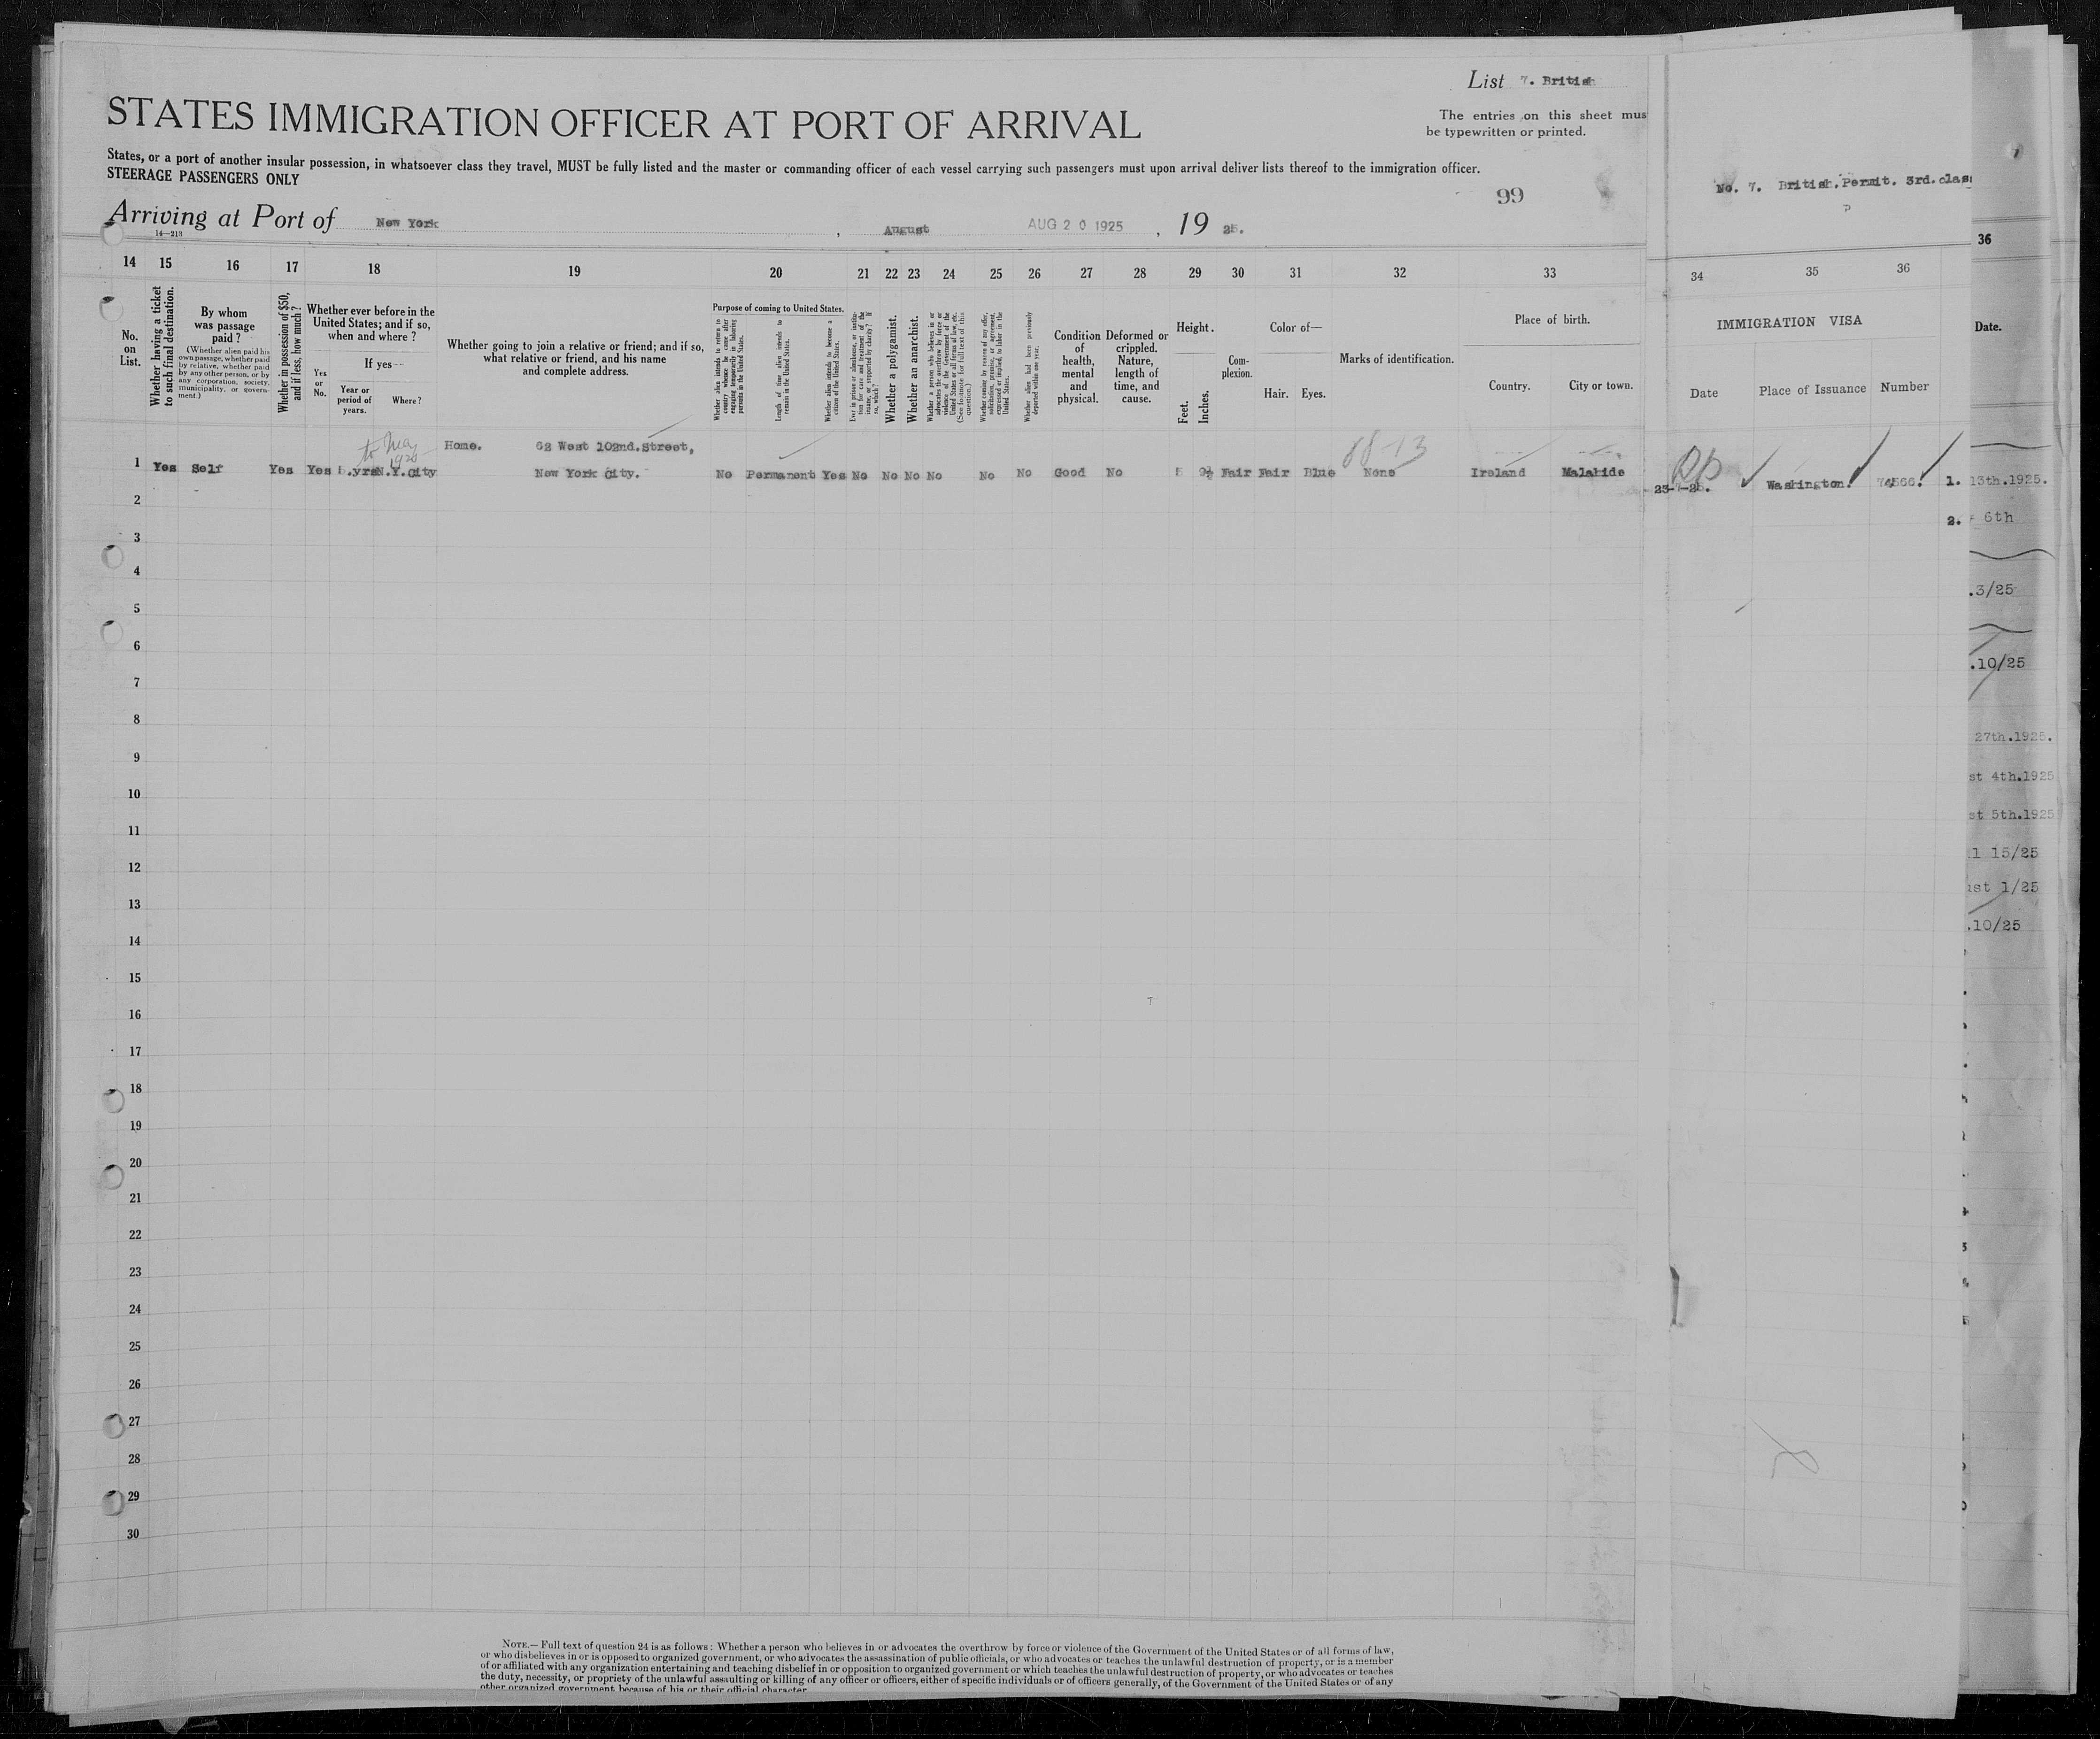 List 7. British
STATES IMMIGRATION OFFICER AT PORT OF ARRIVAL
The entries on this sheet mus
be typewritten or printed.
States, or a port of another insular possession, in whatsoever class they travel, MUST be fully listed and the master or commanding officer of each vessel carrying such passengers must upon arrival deliver lists thereof to the immigration officer.
STEERAGE PASSENGERS ONLY
99
No. 7. British. Permit. 3rd. clas
Arriving at Port of New York, August AUG 20 1925, 19 25.
14—213
36
14 15 16 17 18 19 20 21 22 23 24 25 26 27 28 29 30 31 32 33 34 35 36
No. on List.
Whether having a ticket to such final destination.
By whom was passage paid?
(Whether alien paid his own passage, whether paid by relative, whether paid by any other person, or by any corporation, society, municipality, or government.)
Whether in possession of $50, and if less, how much?
Whether ever before in the United States; and if so, when and where?
Yes or No.
If yes—
Year or period of years.
Where?
Whether going to join a relative or friend; and if so, what relative or friend, and his name and complete address.
Purpose of coming to United States.
Whether alien intends to return to country whence he came after engaging temporarily in laboring pursuits in the United States.
Length of time alien intends to remain in the United States.
Whether alien intends to become a citizen of the United States.
Ever in prison or almshouse, or institution for care and treatment of the insane, or supported by charity? If so, which?
Whether a polygamist.
Whether an anarchist.
Whether a person who believes in or advocates the overthrow by force or violence of the Government of the United States or all forms of law, etc. (See footnote for full text of this question.)
Whether coming by reason of any offer, solicitation, promise, or agreement, expressed or implied, to labor in the United States.
Whether alien had been previously deported within one year.
Condition of health, mental and physical.
Deformed or crippled. Nature, length of time, and cause.
Height.
Feet. Inches.
Complexion.
Color of—
Hair. Eyes.
Marks of identification.
Place of birth.
Country. City or town.
IMMIGRATION VISA
Date Place of Issuance Number
Date.
to
Home. 62 West 102nd. Street,
88-13
1 Yes Self Yes Yes 5.yrs N.Y.City New York City. No Permanent Yes No No No No No No Good No 5 9½ Fair Fair Blue None Ireland Malahide
23-7-25. Washington. 74566. 1. 13th.1925.
2. 6th
2
3
4
5
.3/25
6
.10/25
7
8
27th.1925.
9
st 4th.1925
10
st 5th.1925
11
l 15/25
12
ust 1/25
13
.10/25
14
15
16
17
18
19
20
21
22
23
24
25
26
27
28
29
30
NOTE.—Full text of question 24 is as follows: Whether a person who believes in or advocates the overthrow by force or violence of the Government of the United States or of all forms of law,
or who disbelieves in or is opposed to organized government, or who advocates the assassination of public officials, or who advocates or teaches the unlawful destruction of property, or is a member
of or affiliated with any organization entertaining and teaching disbelief in or opposition to organized government or which teaches the unlawful destruction of property, or who advocates or teaches
the duty, necessity, or propriety of the unlawful assaulting or killing of any officer or officers, either of specific individuals or of officers generally, of the Government of the United States or of any
other organized government because of his or their official character